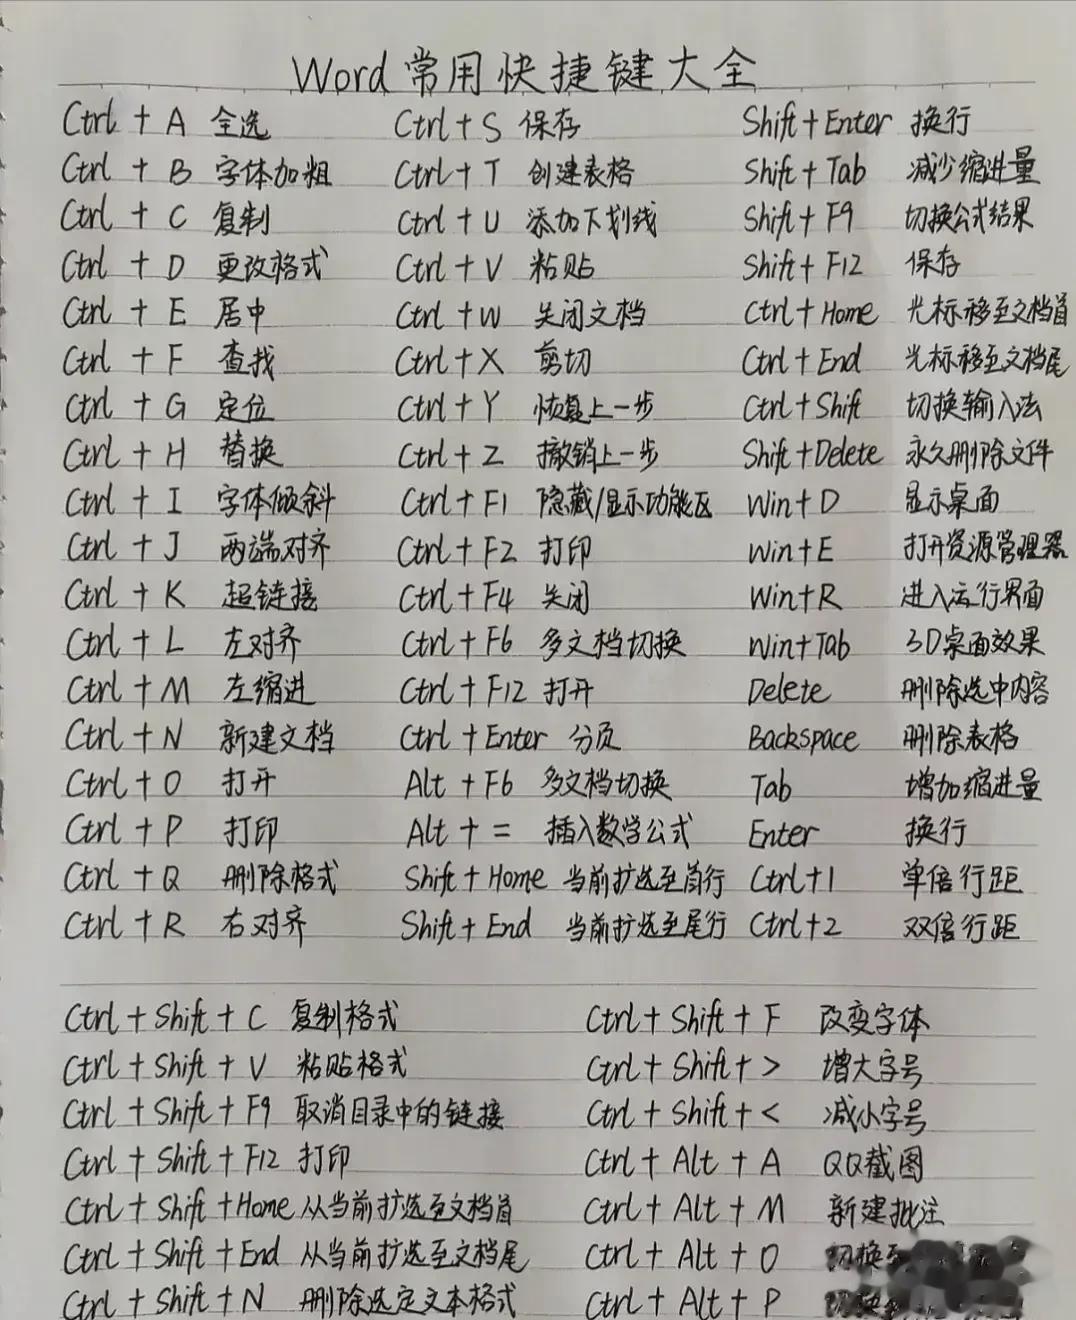 Word常用快捷键大全
Ctrl + A 全选 Ctrl + S 保存 Shift + Enter 换行
Ctrl + B 字体加粗 Ctrl + T 创建表格 Shift + Tab 减少缩进量
Ctrl + C 复制 Ctrl + U 添加下划线 Shift + F9 切换公式结果
Ctrl + D 更改格式 Ctrl + V 粘贴 Shift + F12 保存
Ctrl + E 居中 Ctrl + W 关闭文档 Ctrl + Home 光标移至文档首
Ctrl + F 查找 Ctrl + X 剪切 Ctrl + End 光标移至文档尾
Ctrl + G 定位 Ctrl + Y 恢复上一步 Ctrl + Shift 切换输入法
Ctrl + H 替换 Ctrl + Z 撤销上一步 Shift + Delete 永久删除文件
Ctrl + I 字体倾斜 Ctrl + F1 隐藏/显示功能区 Win + D 显示桌面
Ctrl + J 两端对齐 Ctrl + F2 打印 Win + E 打开资源管理器
Ctrl + K 超链接 Ctrl + F4 关闭 Win + R 进入运行界面
Ctrl + L 左对齐 Ctrl + F6 多文档切换 Win + Tab 3D桌面效果
Ctrl + M 左缩进 Ctrl + F12 打开 Delete 删除选中内容
Ctrl + N 新建文档 Ctrl + Enter 分页 Backspace 删除表格
Ctrl + O 打开 Alt + F6 多文档切换 Tab 增加缩进量
Ctrl + P 打印 Alt + = 插入数学公式 Enter 换行
Ctrl + Q 删除格式 Shift + Home 当前扩选至首行 Ctrl + 1 单倍行距
Ctrl + R 右对齐 Shift + End 当前扩选至尾行 Ctrl + 2 双倍行距
Ctrl + Shift + C 复制格式 Ctrl + Shift + F 改变字体
Ctrl + Shift + V 粘贴格式 Ctrl + Shift + > 增大字号
Ctrl + Shift + F9 取消目录中的链接 Ctrl + Shift + < 减小字号
Ctrl + Shift + F12 打印 Ctrl + Alt + A QQ截图
Ctrl + Shift + Home 从当前扩选至文档首 Ctrl + Alt + M 新建批注
Ctrl + Shift + End 从当前扩选至文档尾 Ctrl + Alt + O 切换至
Ctrl + Shift + N 删除选定文本格式 Ctrl + Alt + P 切换